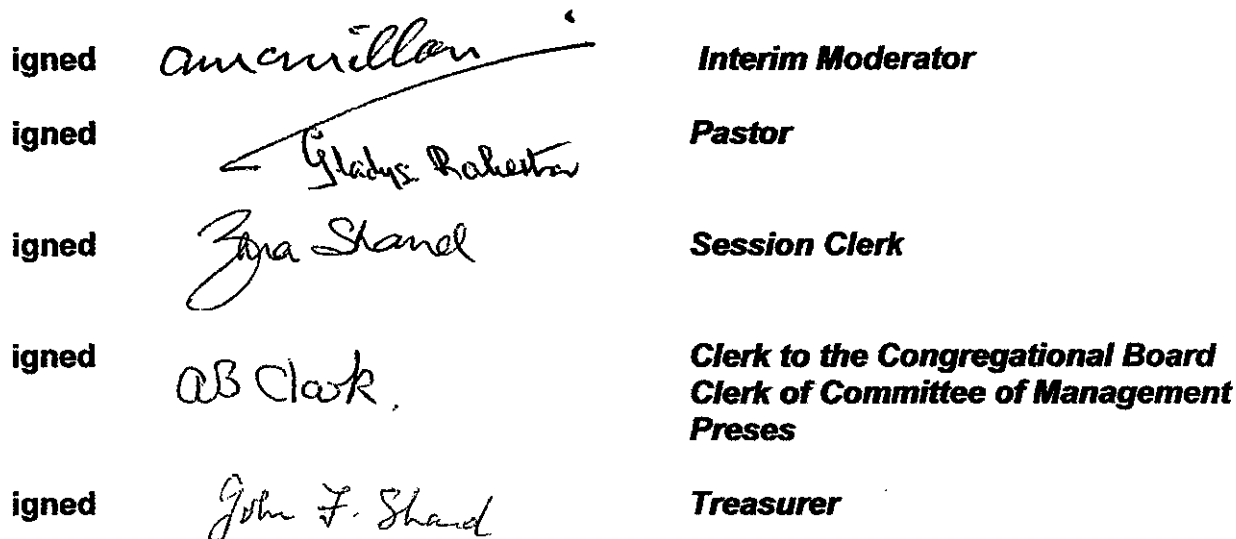 igned amcmillan Interim Moderator
igned Gladys Robertson Pastor
igned Shand Session Clerk
igned AB Clark. Clerk to the Congregational Board
Clerk of Committee of Management
Preses
igned John F. Shand Treasurer